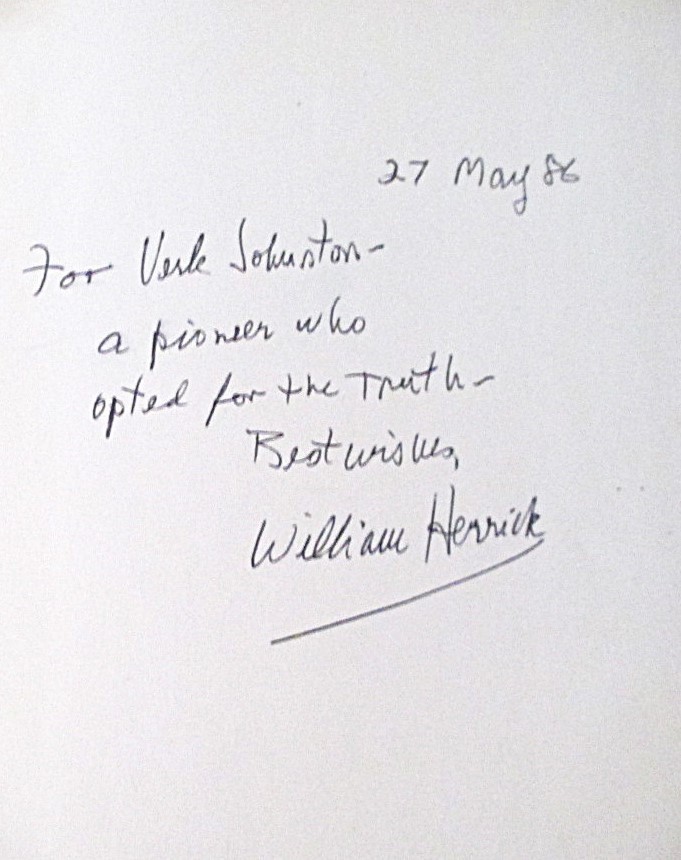 27 May 86
For Verle Johnston–
a pioneer who
opted for the Truth–
Best wishes,
William Herrick